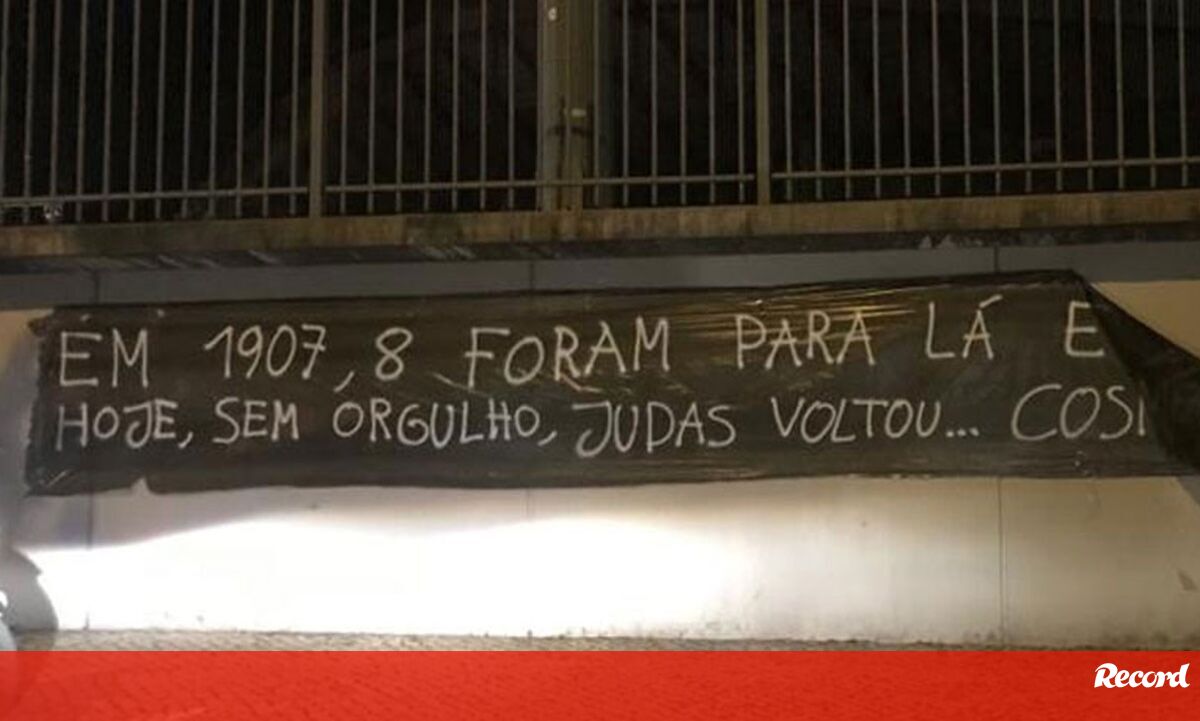 EM 1907, 8 FORAM PARA LÁ E
HOJE, SEM ORGULHO, JUDAS VOLTOU... COSI
Record